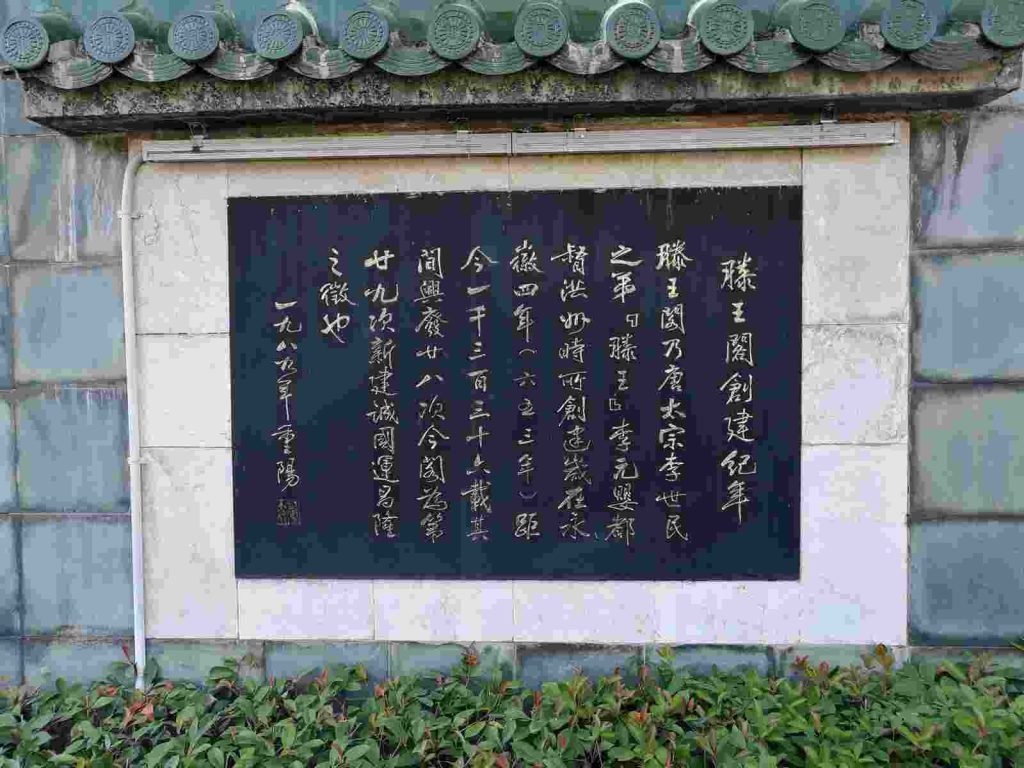 滕王閣創建紀年
滕王閣乃唐太宗李世民
之弟「滕王」李元嬰都
督洪州時所創建歲在永
徽四年(六五三年)距
今一千三百三十六載其
間興廢廿八次今閣為第
廿九次新建誠國運昌隆
之徵也
一九八九年重陽